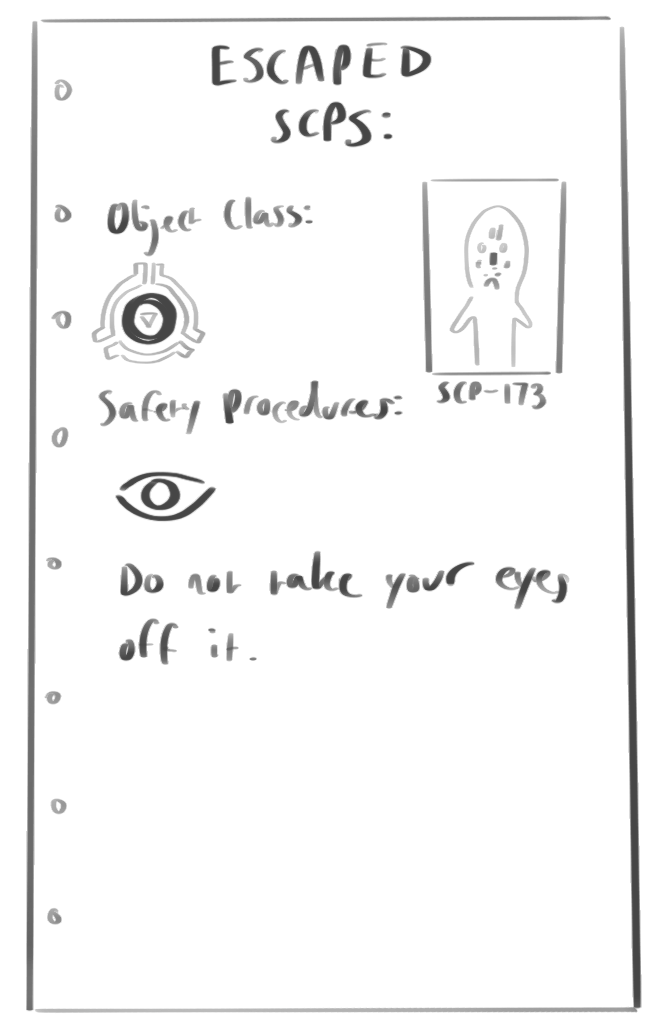 ESCAPED
SCPS:
Object Class:
SCP-173
Safety Procedures:
Do not take your eyes
off it.